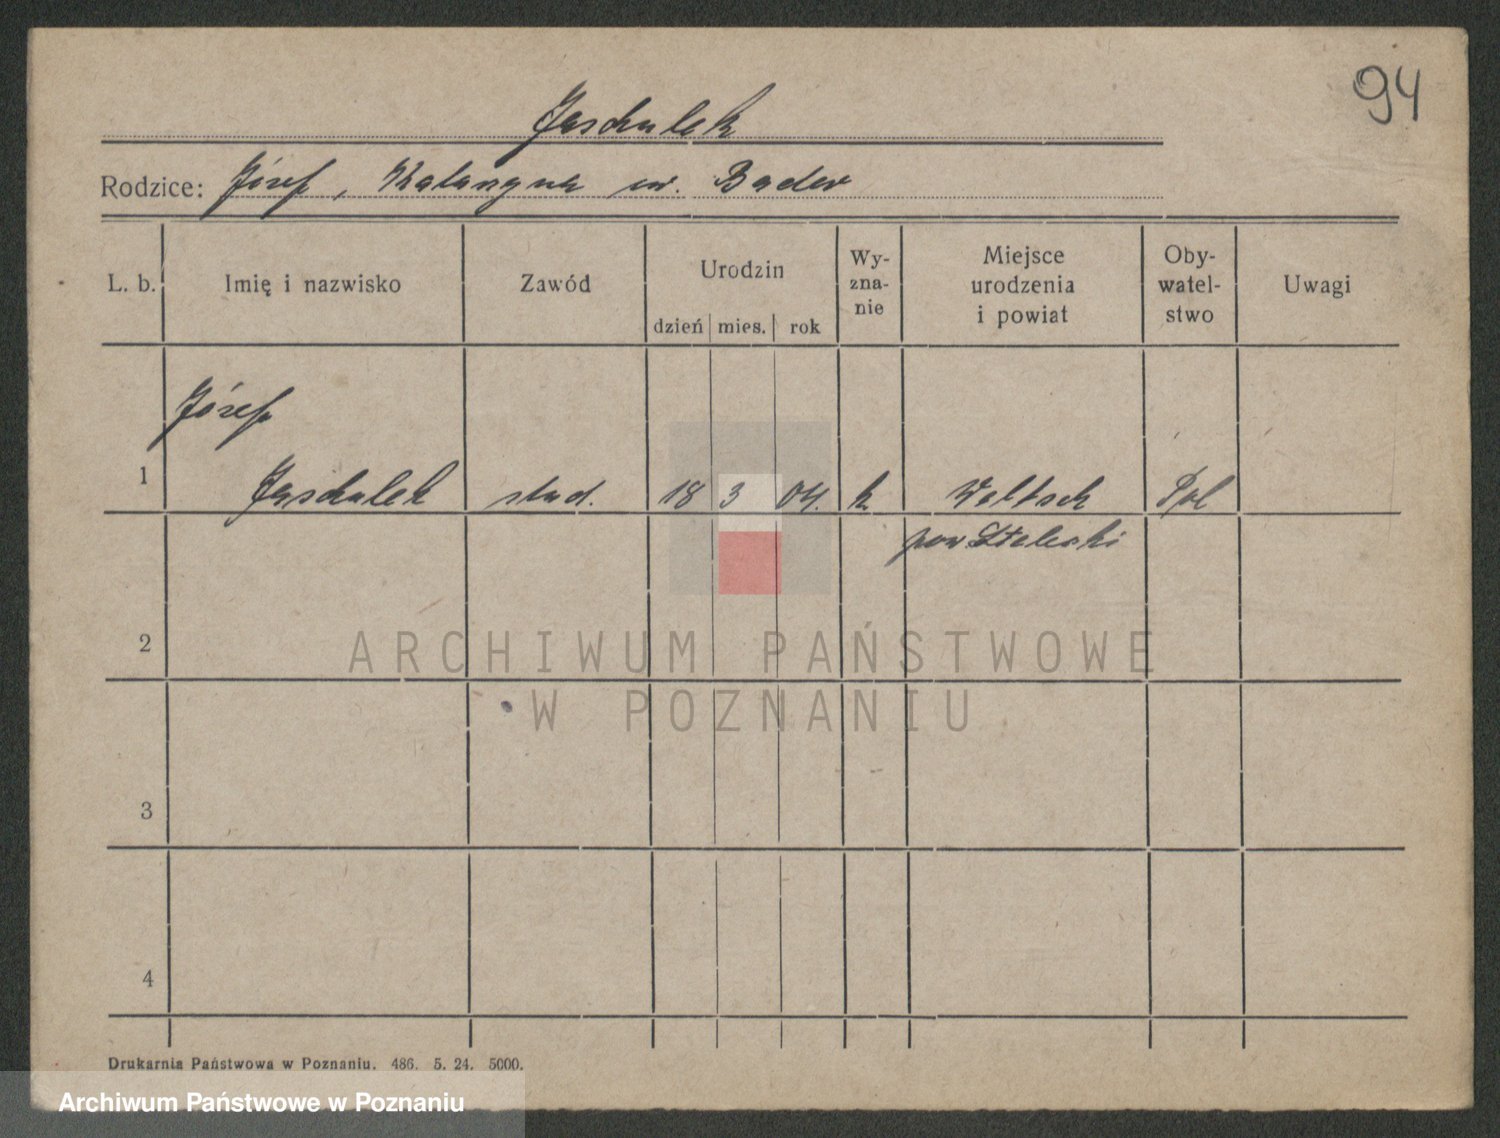 94
Jaschulek
Rodzice: Józef, Katarzyna ur. Bader
L. b. Imię i nazwisko Zawód Urodzin Wy-zna-nie Miejsce urodzenia i powiat Oby-watel-stwo Uwagi
dzień mies. rok
Józef
1 Jaschulek stud. 18 3 04. k Pol
pow
2
ARCHIWUM PAŃSTWOWE
W POZNANIU
3
4
Drukarnia Państwowa w Poznaniu. 486. 5. 24. 5000.
Archiwum Państwowe w Poznaniu